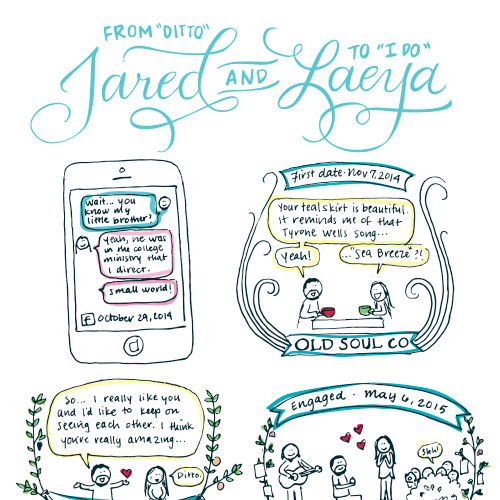 FROM "DITTO"
TO "I DO"
Jared AND Laeya
wait... you
know my
little brother?
Yeah, he was
in the college
ministry that
I direct.
small world!
f October 29, 2014
First date · Nov 7, 2014
Your teal skirt is beautiful.
It reminds me of that
Tyrone Wells song...
Yeah!
..."Sea Breeze"?!
OLD SOUL CO
So... I really like you
and I'd like to keep on
seeing each other. I think
you're really amazing...
Ditto.
Engaged · May 6, 2015
Shh!